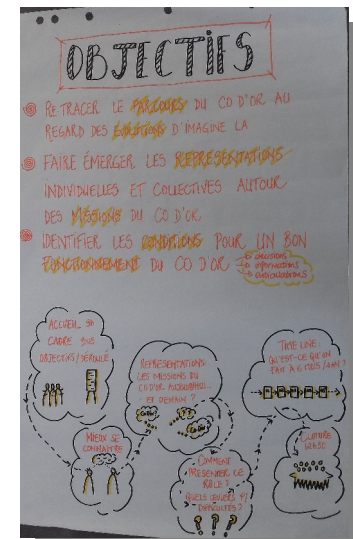 OBJECTIFS
RETRACER LE PARCOURS DU CO D'OR AU
REGARD DES ÉVOLUTIONS D'IMAGINE LA
FAIRE ÉMERGER LES REPRÉSENTATIONS
INDIVIDUELLES ET COLLECTIVES AUTOUR
DES MISSIONS DU CO D'OR
IDENTIFIER LES CONDITIONS POUR UN BON
FONCTIONNEMENT DU CO D'OR
décisions
informations
articulations
ACCUEIL
CADRE
OBJECTIFS/DÉROULÉ
MIEUX SE
CONNAÎTRE
REPRÉSENTATIONS
LES MISSIONS DU
CO D'OR AUJOURD'HUI...
ET DEMAIN ?
COMMENT
PRÉSENTER LE
RÔLE ?
QUELS LEVIERS
DIFFICULTÉS ?
TIME LINE:
QU'EST-CE QU'ON
FAIT À 6 MOIS/1 AN ?
CLÔTURE